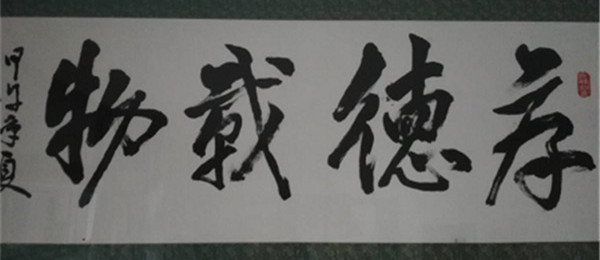 厚德載物
甲午年夏